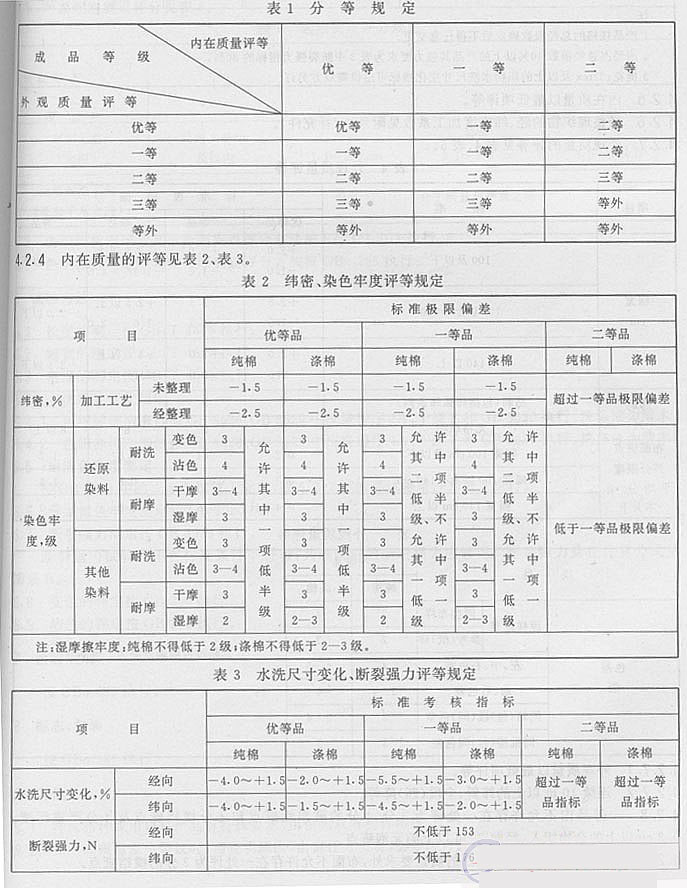 表1 分等规定
内在质量评等
成品等级
外观质量评等
优等 一等 二等
优等 优等 一等 二等
一等 一等 一等 二等
二等 二等 二等 三等
三等 三等 三等 等外
等外 等外 等外 等外
4.2.4 内在质量的评等见表2、表3。
表2 纬密、染色牢度评等规定
项目 标准极限偏差
优等品 一等品 二等品
纯棉 涤棉 纯棉 涤棉 纯棉 涤棉
纬密,% 加工工艺 未整理 -1.5 -1.5 -1.5 -1.5 超过一等品极限偏差
经整理 -2.5 -2.5 -2.5 -2.5
染色牢度,级 还原染料 耐洗 变色 3 允许其中一项低半级 3 允许其中一项低半级 3 允许其中二项低半级、不允许其中一项低一级 3 允许其中二项低半级、不允许其中一项低一级 低于一等品极限偏差
沾色 4 4 4 4
耐摩 干摩 3—4 3—4 3—4 3—4
湿摩 3 3 3 3
其他染料 耐洗 变色 3 3 3 3
沾色 3—4 3—4 3—4 3—4
耐摩 干摩 3 3 3 3
湿摩 2 2—3 2 2—3
注:湿摩擦牢度:纯棉不得低于2级;涤棉不得低于2—3级。
表3 水洗尺寸变化、断裂强力评等规定
项目 标准考核指标
优等品 一等品 二等品
纯棉 涤棉 纯棉 涤棉 纯棉 涤棉
水洗尺寸变化,% 经向 -4.0～+1.5 -2.0～+1.5 -5.5～+1.5 -3.0～+1.5 超过一等品指标 超过一等品指标
纬向 -4.0～+1.5 -1.5～+1.5 -4.5～+1.5 -2.0～+1.5
断裂强力,N 经向 不低于153
纬向 不低于